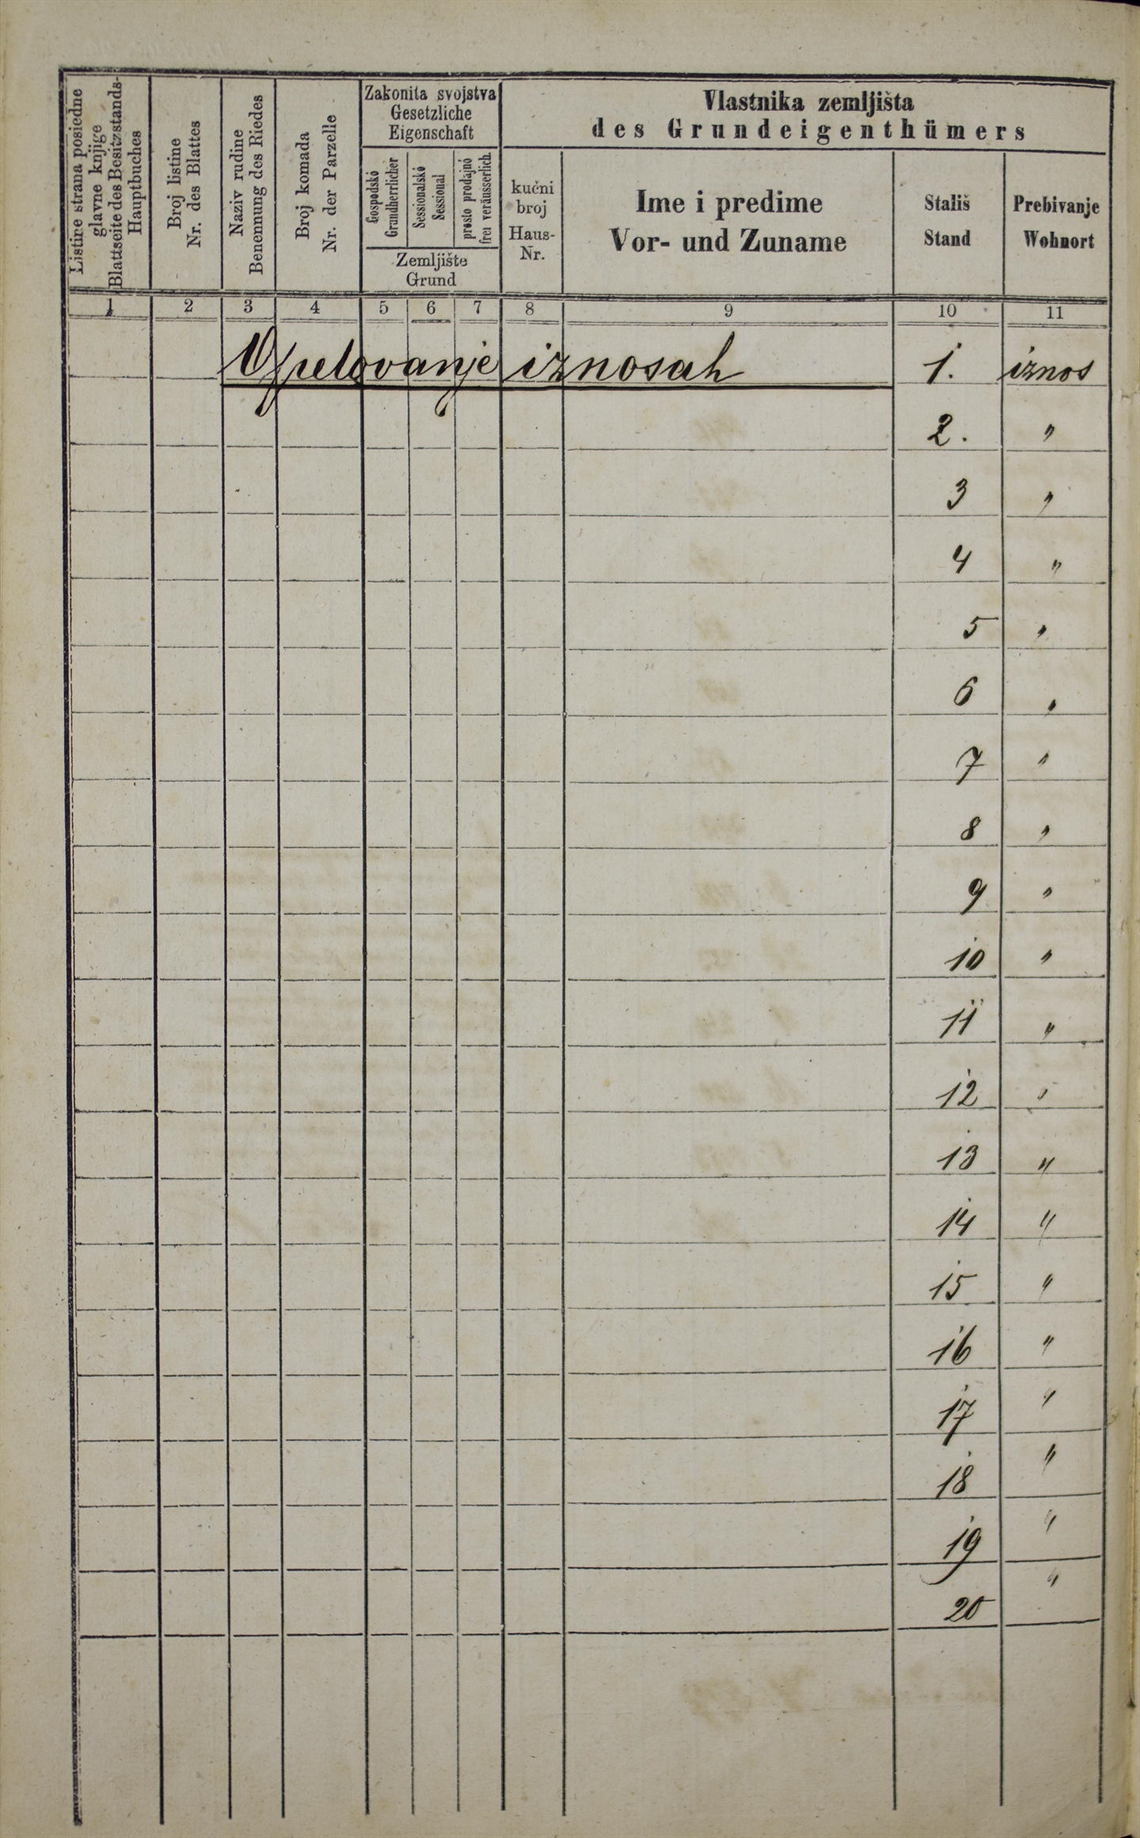 Listine strana posiedne
glavne knjige
Blattseite des Besitzstands-
Hauptbuches
Broj listine
Nr. des Blattes
Naziv rudine
Benennung des Riedes
Broj komada
Nr. der Parzelle
Zakonita svojstva
Gesetzliche
Eigenschaft
Gospodskó
Grundherrlicher
Sessionalskó
Sessional
prosto prodajnó
frei veräusserlich.
Zemljište
Grund
Vlastnika zemljišta
des Grundeigenthümers
kućni
broj
Haus-
Nr.
Ime i predime
Vor- und Zuname
Stališ
Stand
Prebivanje
Wohnort
1 2 3 4 5 6 7 8 9 10 11
iznosah 1. iznos
2. "
3 "
4 "
5 "
6 "
7 "
8 "
9 "
10 "
11 "
12 "
13 "
14 "
15 "
16 "
17 "
18 "
19 "
20 "